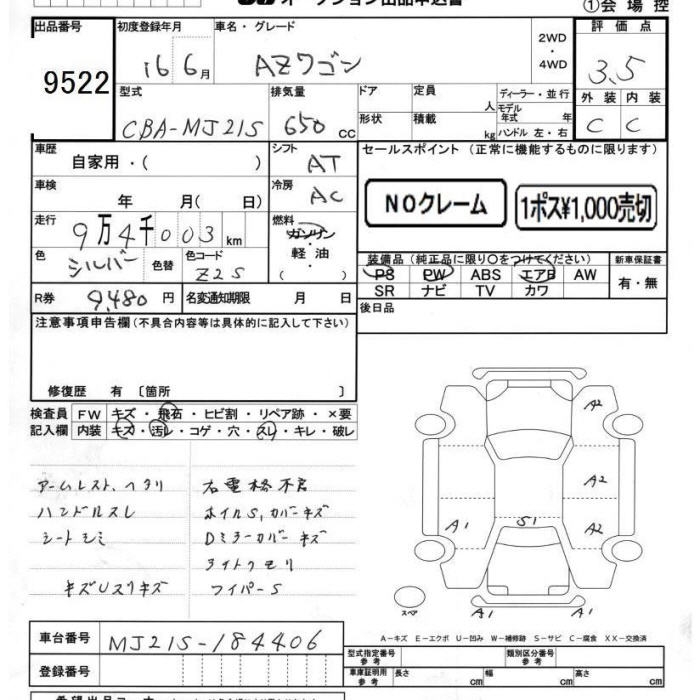 オークション出品申込書
①会場控
出品番号 9522
初度登録年月 16 6月
車名・グレード AZワゴン
2WD・4WD
評価点 3.5
外装 C 内装 C
型式 CBA-MJ21S
排気量 650 cc
ドア 形状
定員 人 積載 kg
ディーラー・並行
モデル年式 年
ハンドル 左・右
車歴 自家用・( )
シフト AT
セールスポイント (正常に機能するものに限ります)
車検 年 月( 日)
冷房 AC
NOクレーム
1ポス¥1,000売切
走行 9万4千003km
燃料 ガソリン・軽油
色 シルバー 色替
色コード Z2S
装備品 (純正品に限り○をつけてください)
新車保証書 有・無
PS PW ABS エアB AW
SR ナビ TV カワ
R券 9,480円
名変通知期限 月 日
後日品
注意事項申告欄 (不具合内容等は具体的に記入して下さい)
修復歴 有 〔箇所 〕
検査員記入欄
FW キズ・飛石・ヒビ割・リペア跡・×要
内装 キズ・汚レ・コゲ・穴・スレ・キレ・破レ
アームレスト、ヘタリ
ハンドルスレ
シートシミ
キズUスリキズ
右電格不良
ホイルS,カバーキズ
Dミラーカバーキズ
ライトクモリ
ワイパーS
A2
A2
A2
A1
S1
A1 A1
スペア
A-キズ E-エクボ U-凹み W-補修跡 S-サビ C-腐食 XX-交換済
車台番号 MJ21S-184406
登録番号
型式指定番号 参考
類別区分番号 参考
車庫証明用 参考 長さ cm 幅 cm 高さ cm
希望出品コーナー